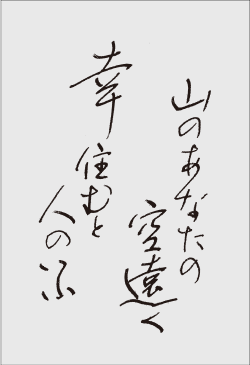 山のあなたの
空遠く
幸
住むと
人のふ